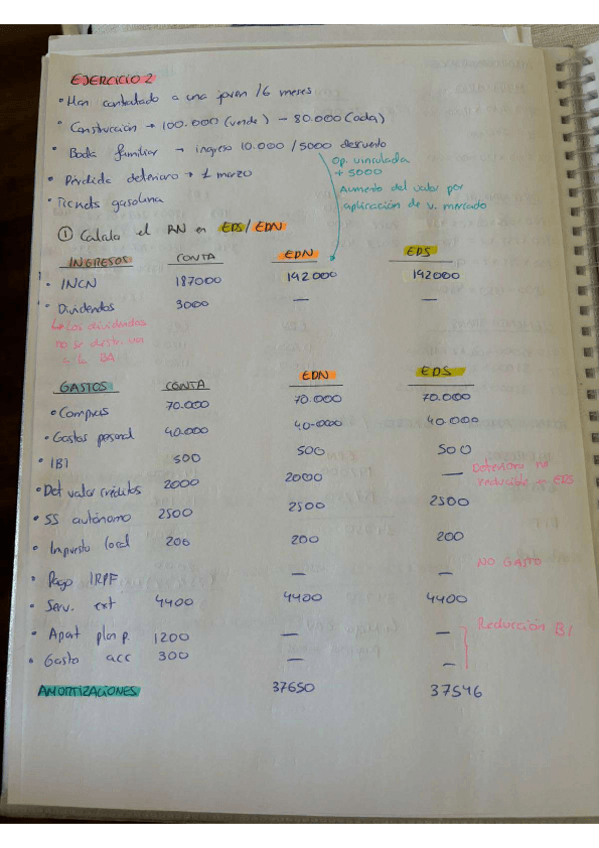 EJERCICIO 2
• Han contratado a una joven /6 meses
• Construcción → 100.000 (verde) – 80.000 (oda)
• Boda familiar → ingreso 10.000 / 5000 descuento
Op. vinculada
+ 5000
Aumento del valor por
aplicación de v. mercado
• Pérdida deterioro → 1 marzo
• Tickets gasolina
① Calcula el RN en EDS/EDN
INGRESOS CONTA EDN EDS
• INCN 187000 192000 192000
• Dividendos 3000 — —
↳ Los dividendos
no se
a la
GASTOS CONTA EDN EDS
• Compras 70.000 70.000 70.000
• Gastos personal 40.000 40.000 40.000
• IBI 500 500 500
• Det valor créditos 2000 2000 — Deterioro no
EDS
• SS autónomo 2500 2500 2500
• Impuesto local 200 200 200
• Pago IRPF — — NO GASTO
• Serv. ext 4400 4400 4400
• Aport plan p. 1200 — — Reducción BI
• Gasto acc 300 — —
AMORTIZACIONES 37650 37546